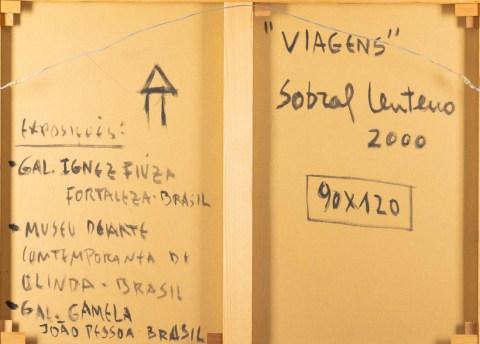 EXPOSIÇÕES:
• GAL. IGNEZ FIÚZA
FORTALEZA · BRASIL
• MUSEU DE ARTE
COMTEMPORANEA DE
OLINDA - BRASIL
• GAL. GAMELA
JOÃO PESSOA - BRASIL
"VIAGENS"
Sobral Centeno
2000
90X120